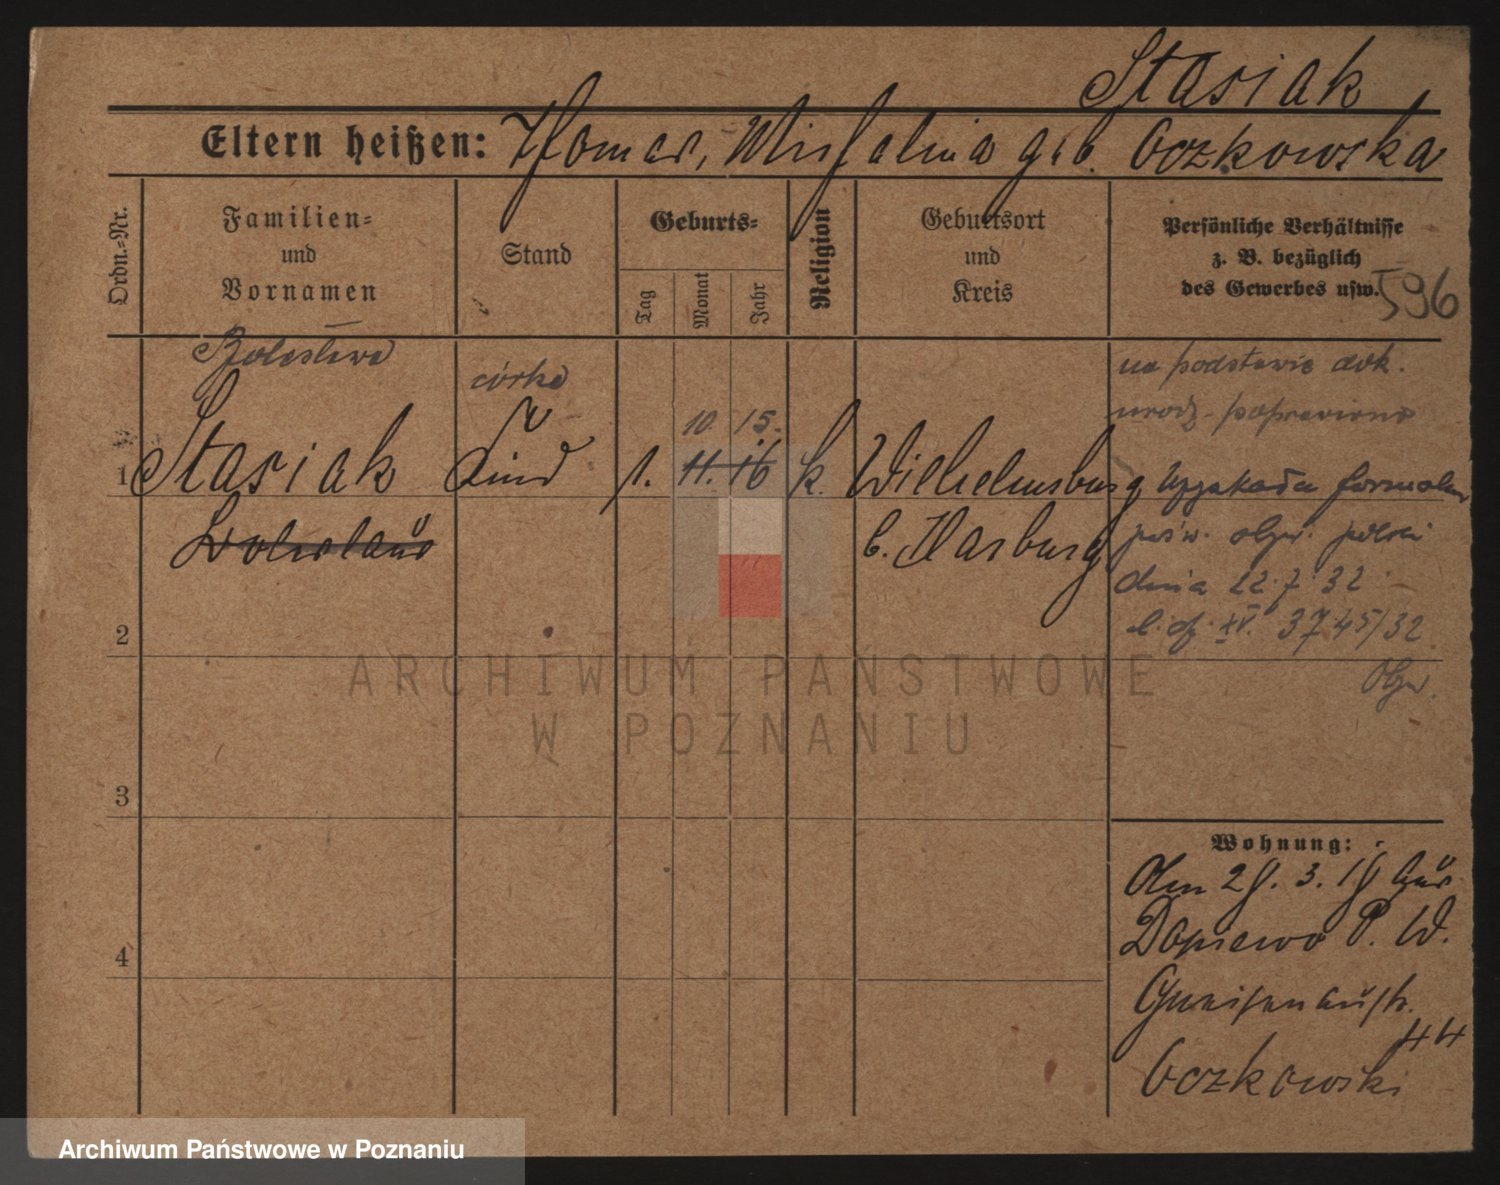 Stasiak
Eltern heißen: Thomas, Michalina geb. Oczkowska
Ordn.=Nr.
Familien=
und
Vornamen
Stand
Geburts=
Tag
Monat
Jahr
Religion
Geburtsort
und
Kreis
Persönliche Verhältnisse
z. B. bezüglich
des Gewerbes usw.
596
Bolesława
córka
na podstawie dok.
urodz. poprawiono
10. 15.
1
Stasiak Kind 1. 11. 16 k. Wilhelmsburg
b. Harburg
Boleslaus
Uzyskała formalne
pośw. obyw. polski
dnia 22.7.32
l. dz. XV. 3745/32
2
3
4
Wohnung:
Dopiewo P. W.
Gneisenaustr.
44
Oczkowski
ARCHIWUM PAŃSTWOWE
W POZNANIU
Archiwum Państwowe w Poznaniu